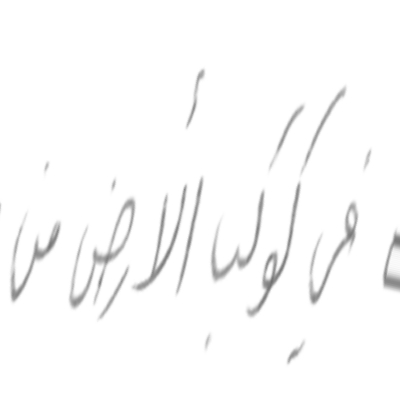 في كوكب الأرض من